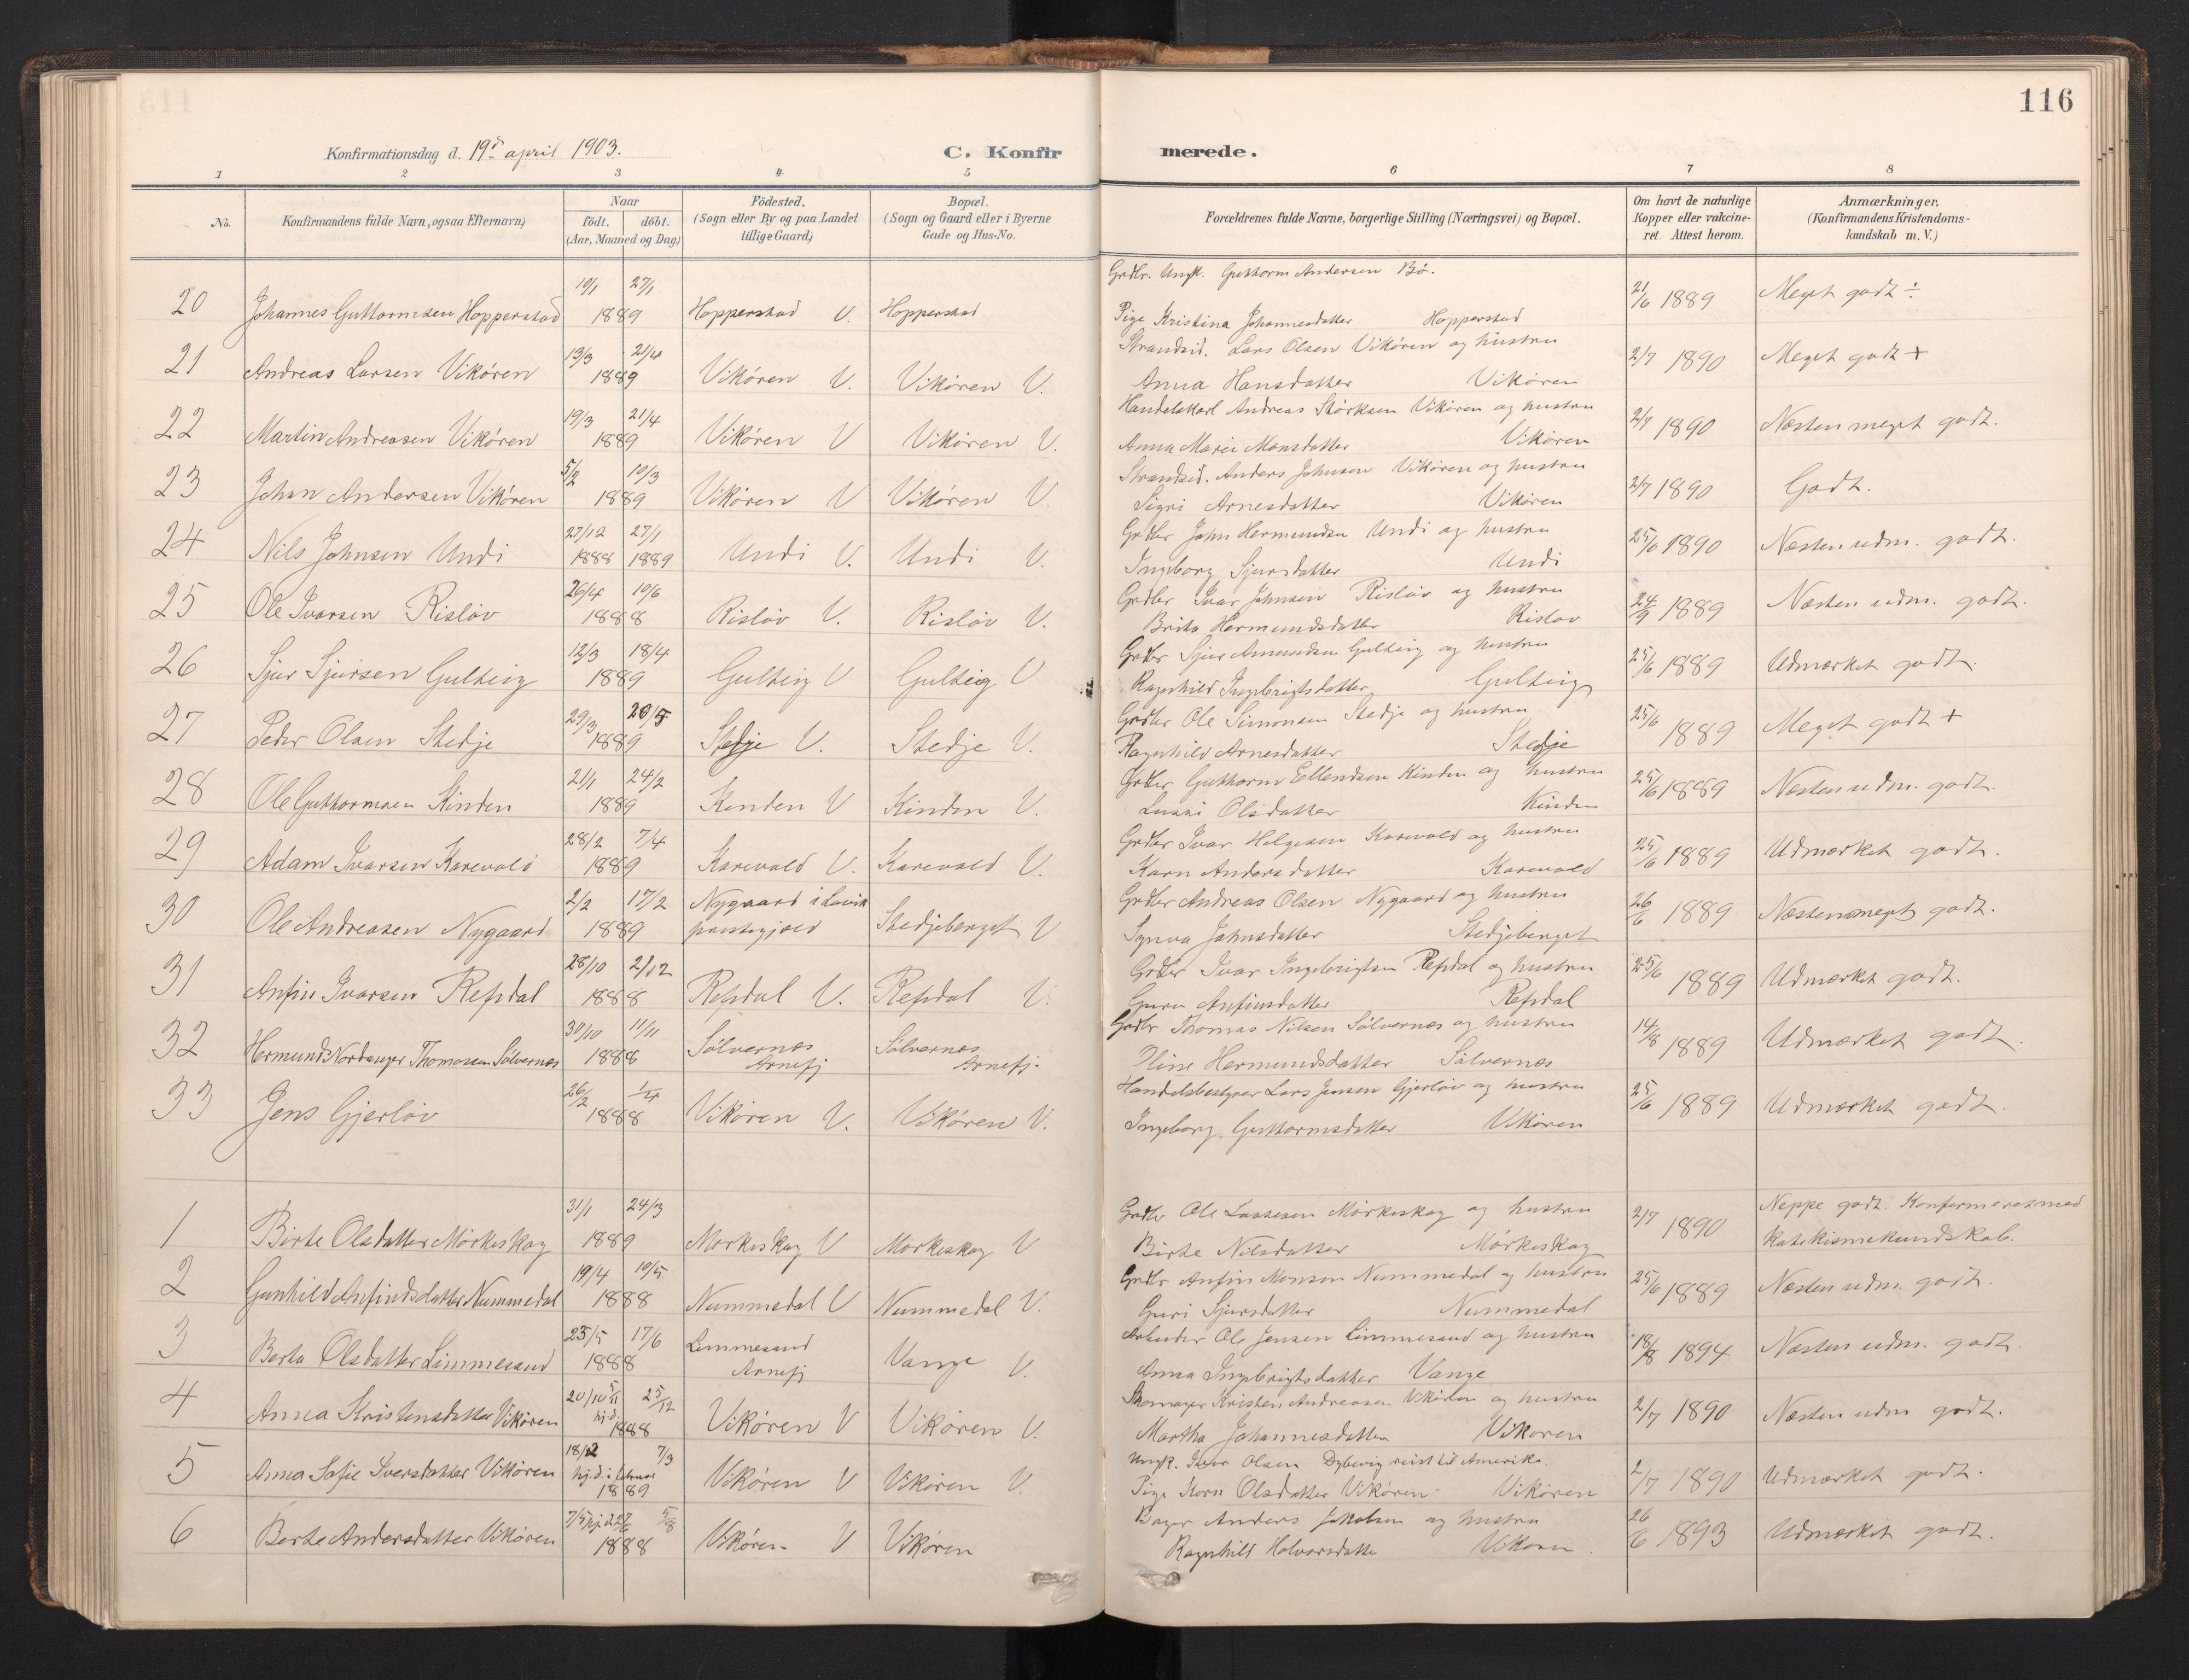 116
Konfirmationsdag d. 19de april 1903. C. Konfirmerede.
1 2 3 4 5 6 7 8
No. Konfirmandens fulde Navn, ogsaa Efternavn) Naar födt. döbt. (Aar, Maaned og Dag) Födested. (Sogn eller By og paa Landet tillige Gaard) Bopæl. (Sogn og Gaard eller i Byerne Gade og Hus-No. Forældrenes fulde Navne, borgerlige Stilling (Næringsvei) og Bopæl. Om havt de naturlige Kopper eller vakcineret. Attest herom. Anmærkninger. (Konfirmandens Kristendomskundskab m. V.)
20 Johannes Guttormsen Hopperstad 19/1 27/1 1889 Hopperstad V. Hopperstad Grdbr. Ungk. Guttorm Andersen Bö.
Pige Kristina Johannesdatter Hopperstad 21/6 1889 Meget godt ÷
21 Andreas Larsen Vikören 13/3 21/4 1889 Vikören V. Vikören V. Strandsid. Lars Olsen Vikören og hustru
Anna Hansdatter Vikören 2/7 1890 Meget godt +
22 Martin Andreasen Vikören 19/3 21/4 1889 Vikören V Vikören V. Handelskarl Andreas Störksen Vikören og hustru
Anna Marie Monsdatter Vikören 2/7 1890 Næsten meget godt.
23 Johan Andersen Vikören 5/2 10/3 1889 Vikören V Vikören V. Strandsid. Anders Johnsen Vikören og hustru
Sigri Arnesdatter Vikören 2/7 1890 Godt.
24 Nils Johnsen Undi 27/12 1888 27/1 1889 Undi V. Undi V. Grdbr John Hermundsen Undi og hustru
Ingeborg Sjursdatter Undi 25/6 1890 Næsten udm. godt.
25 Ole Ivarsen Rislöv 26/4 10/6 1888 Rislöv V. Rislöv V. Grdbr Ivar Johnsen Rislöv og hustru
Brita Hermundsdatter Rislov 24/9 1889 Næsten udm. godt.
26 Sjur Sjursen Gulteig 12/3 18/4 1889 Gulteig V Gulteig V Grdbr Sjur Amundsen Gulteig og hustru
Ragnhild Ingebrigtsdatter Gulteig 25/6 1889 Udmærket godt.
27 Peder Olsen Stedje 29/3 20/5 1889 Stedje V. Stedje V. Grdbr Ole Simonsen Stedje og hustru
Ragnhild Arnesdatter Stedje 25/6 1889 Meget godt +
28 Ole Guttormsen Kinden 21/1 24/2 1889 Kinden V Kinden V. Grdbr Guttorm Ellendsen Kinden og hustru
Lussi Olsdatter Kinden 25/6 1889 Næsten udm. godt.
29 Adam Ivarsen Karevold 28/2 7/4 1889 Karevold V. Karevold V. Grdbr Ivar Helgesen Karevold og hustru
Karn Andersdatter Karevold 25/6 1889 Udmærket godt.
30 Ole Andreasen Nygaard 2/2 17/2 1889 Nygaard i Lavik prestegjeld Stedjeberget V Grdbr Andreas Olsen Nygaard og hustru
Synva Johnsdatter Stedjeberget 26/6 1889 Næsten meget godt.
31 Anfin Ivarsen Refsdal 28/10 2/12 1888 Refsdal V. Refsdal V. Grdbr Ivar Ingebrigtsen Refsdal og hustru
Guru Anfinsdatter Refsdal 25/6 1889 Udmærket godt.
32 Hermund Nordanger Thomassen Sölvernes 30/10 11/11 1888 Sölvernes Arnefj Sölvernes Arnefj. Grdbr Thomas Nilsen Sölvernes og hustru
Oline Hermundsdatter Sölvernes 14/8 1889 Udmærket godt.
33 Jens Gjerlöv 26/2 1/4 1888 Vikören V. Vikören V. Handelsbestyrer Lars Jensen Gjerlöv og hustru
Ingeborg Guttormsdatter Vikören 25/6 1889 Udmærket godt.
1 Birte Olsdatter Mörkeskog 31/1 24/3 1889 Mørkeskog V Mørkeskog V Grdbr Ole Lassesen Mörkeskog og hustru
Birte Nilsdatter Mörkeskog 2/7 1890 Neppe godt. Konfirmeret med katekismekundskab.
2 Gunhild Anfindsdatter Nummedal 19/4 10/5 1888 Nummedal V Nummedal V. Grdbr Anfin Monsen Nummedal og hustru
Guri Sjursdatter Nummedal 25/6 1889 Næsten udm. godt.
3 Berta Olsdatter Limmesand 23/5 17/6 1888 Limmesand Arnefj Vange V. Arbeider Ole Jensen Limmesand og hustru
Anna Ingebrigtsdatter Vange 18/8 1894 Næsten udm. godt.
4 Anna Kristensdatter Vikören 20/10 hj.d. 5/11 25/12 1888 Vikören V Vikören V. Skomager Kristen Andreasen Vikören og hustru
Martha Johannesdatter Vikören 2/7 1890 Næsten udm godt.
5 Anna Sofie Iversdatter Vikören 18/12 7/3 hj.d. i februar 1889 Vikören V Vikören V. Ungk. Ivar Olsen Dybevig reist til Amerika.
Pige Karn Olsdatter Vikören Vikören 2/7 1890 Udmærket godt.
6 Berte Andersdatter Vikören 7/5 hj.d. 27/6 5/8 1888 Vikören V Vikören Bager Anders Jakobsen og hustru
Ragnhild Halvorsdatter Vikören. 26/6 1893 Udmærket godt.